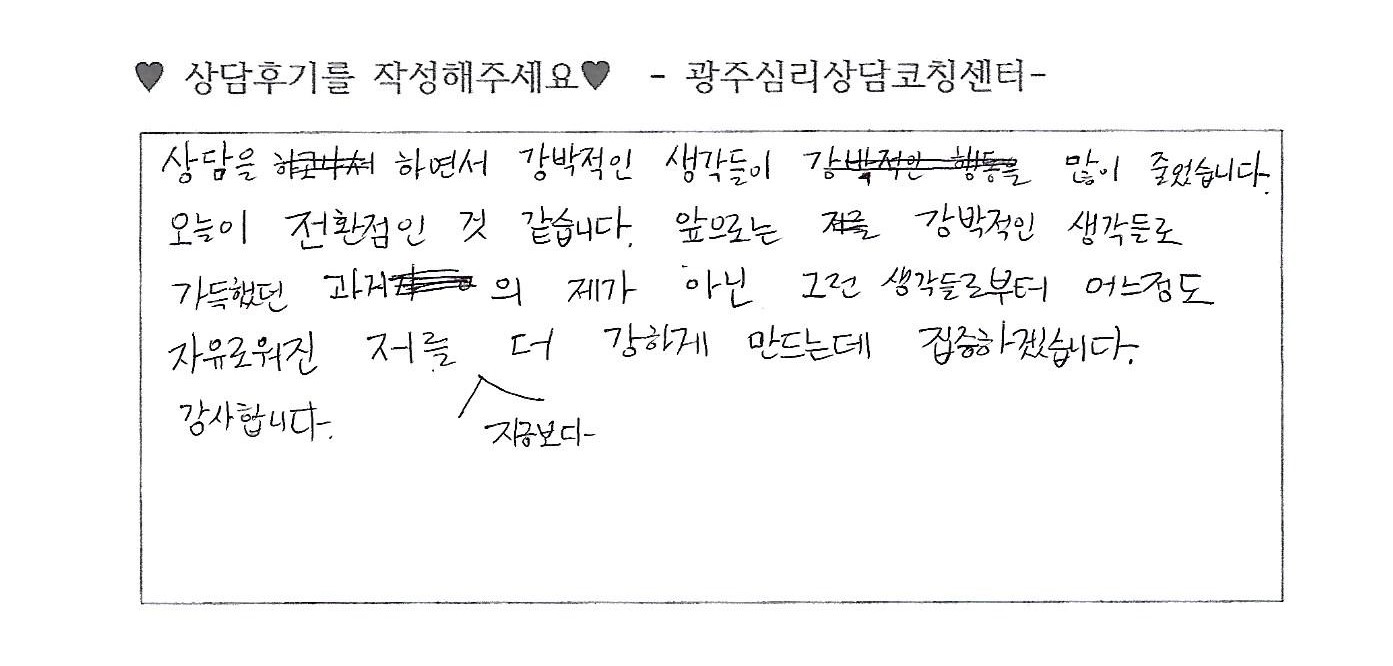 ♥ 상담후기를 작성해주세요♥ - 광주심리상담코칭센터-
상담을 하면서 강박적인 생각들이 강박적인 행동을 많이 줄었습니다.
오늘이 전환점인 것 같습니다. 앞으로는 저를 강박적인 생각들로
가득했던 과거의 제가 아닌 그런 생각들로부터 어느정도
자유로워진 저를 더 강하게 만드는데 집중하겠습니다.
감사합니다.
지금보다